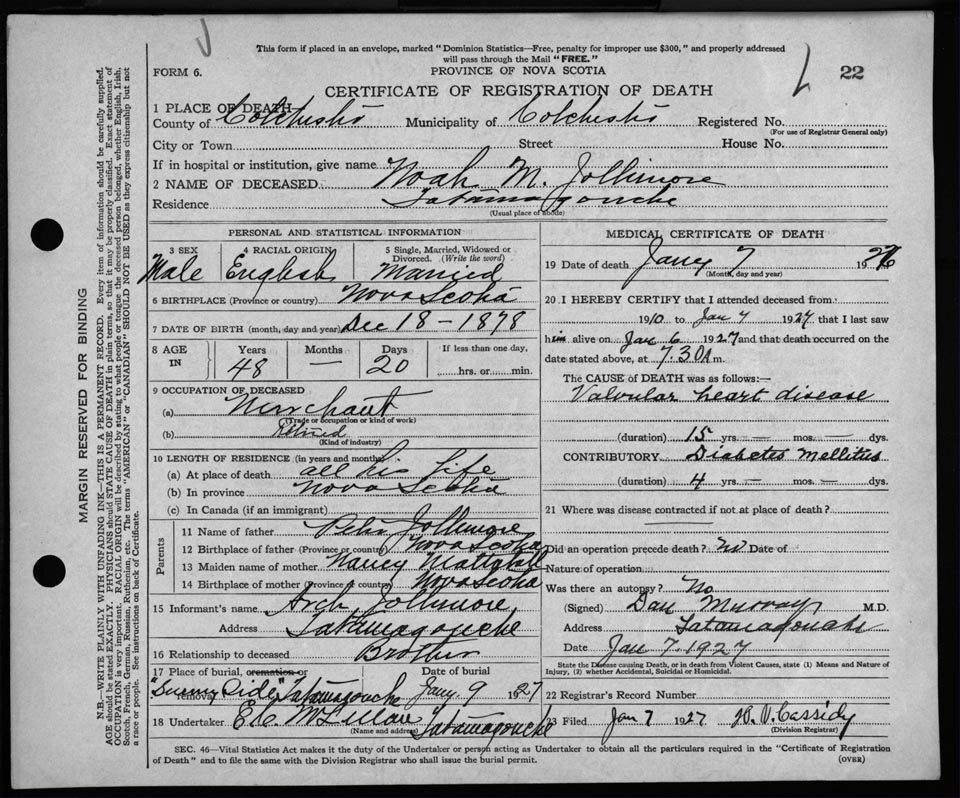 This form if placed in an envelope, marked "Dominion Statistics—Free, penalty for improper use $300," and properly addressed
will pass through the Mail "FREE."
FORM 6.
PROVINCE OF NOVA SCOTIA
22
CERTIFICATE OF REGISTRATION OF DEATH
1 PLACE OF DEATH
County of Colchester Municipality of Colchester Registered No.
(For use of Registrar General only)
City or Town Street House No.
If in hospital or institution, give name
2 NAME OF DECEASED Noah M. Jollimore
Residence Tatamagouche
(Usual place of abode)
PERSONAL AND STATISTICAL INFORMATION
3 SEX 4 RACIAL ORIGIN 5 Single, Married, Widowed or
Divorced. (Write the word)
Male English Married
6 BIRTHPLACE (Province or country) Nova Scotia
7 DATE OF BIRTH (month, day and year) Dec 18 - 1878
8 AGE IN Years Months Days If less than one day,
48 — 20 hrs. or min.
9 OCCUPATION OF DECEASED
(a) Merchant
(Trade or occupation or kind of work)
(b) Retired
(Kind of industry)
10 LENGTH OF RESIDENCE (in years and months)
(a) At place of death all his life
(b) In province Nova Scotia
(c) In Canada (if an immigrant)
Parents
11 Name of father Peter Jollimore
12 Birthplace of father (Province or country) Nova Scotia
13 Maiden name of mother Nancy Mattatall
14 Birthplace of mother (Province or country) Nova Scotia
15 Informant's name Arch Jollimore
Address Tatamagouche
16 Relationship to deceased Brother
17 Place of burial, cremation or removal Date of burial
"Sunny Side" Tatamagouche Jany. 9 1927
18 Undertaker Tatamagouche
(Name and address)
MEDICAL CERTIFICATE OF DEATH
19 Date of death Jany 7 19
(Month, day and year)
20 I HEREBY CERTIFY that I attended deceased from
1910 to Jan 7 1927 that I last saw
him alive on Jan 6 1927 and that death occurred on the
date stated above, at 7.30 A m.
The CAUSE of DEATH was as follows:—
Valvular heart disease
(duration) 15 yrs. — mos. — dys.
CONTRIBUTORY Diabetes Mellitus
(duration) 4 yrs. — mos. — dys.
21 Where was disease contracted if not at place of death?
Did an operation precede death? No Date of
Nature of operation
Was there an autopsy? No
(Signed) Dan Murray M.D.
Address Tatamagouche
Date Jan 7. 1927
State the Disease causing Death, or in death from Violent Causes, state (1) Means and Nature of
Injury, (2) whether Accidental, Suicidal or Homicidal.
22 Registrar's Record Number
23 Filed Jan 7 1927 Cassidy
(Division Registrar)
SEC. 46—Vital Statistics Act makes it the duty of the Undertaker or person acting as Undertaker to obtain all the particulars required in the "Certificate of Registration
of Death" and to file the same with the Division Registrar who shall issue the burial permit.
(OVER)
MARGIN RESERVED FOR BINDING
N.B.—WRITE PLAINLY WITH UNFADING INK—THIS IS A PERMANENT RECORD. Every item of information should be carefully supplied.
AGE should be stated EXACTLY. PHYSICIANS should STATE CAUSE OF DEATH in plain terms, so that it may be properly classified. Exact statement of
OCCUPATION is very important. RACIAL ORIGIN will be described by stating to what people or tongue the deceased person belonged, whether English, Irish,
Scotch, French, German, Russian, Ruthenian, etc. The terms "AMERICAN" or "CANADIAN" SHOULD NOT BE USED as they express citizenship but not
a race or people. See instructions on back of Certificate.